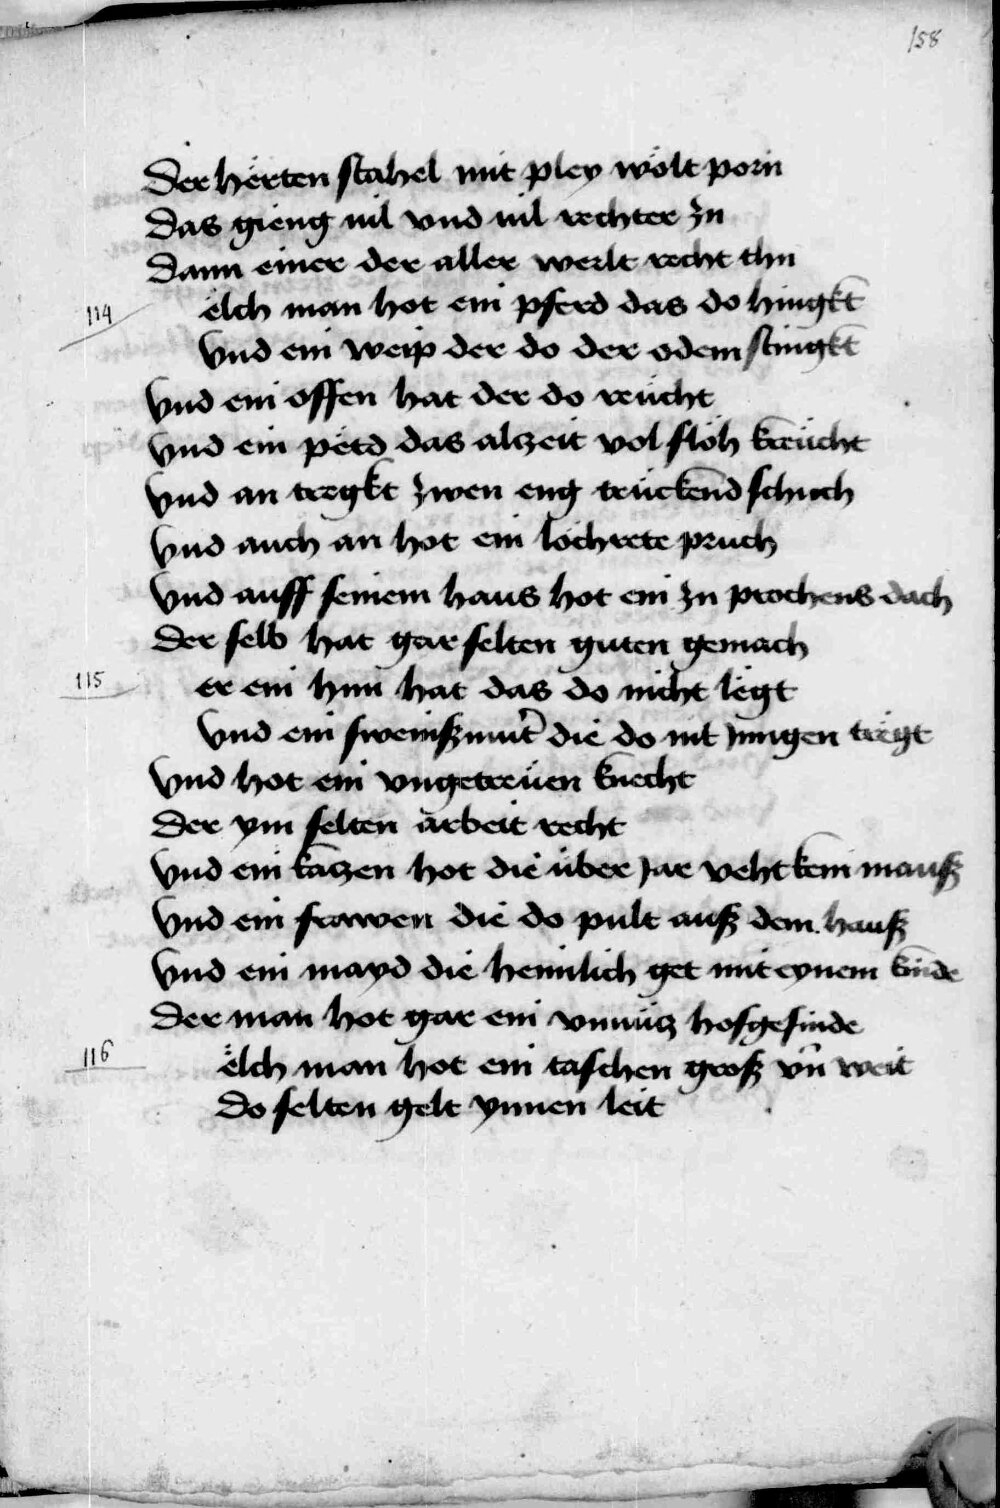 158
Der herten stahel mit pley wölt porn
Das gieng vil vnd vil rechter zu
Dann einer der aller werlt recht thu
114
elch man hot ein pferd das do hingkt
Vnd ein weip der do der odem stingkt
Vnd ein offen hat der do reücht
Vnd ein petd das alzeit vol flöh kreücht
Vnd an tregkt zwen eng trückend schuch
Vnd auch an hot ein löchrete pruch
Vnd auff seinem haus hot ein zu prochens dach
Der selb hat gar selten guten gemach
115
er ein hun hat das do nicht legt
Vnd ein sweinßmut̃ die do nit Jungen tregt
Vnd hot ein vngetreüen knecht
Der ym selten arbeit recht
Vnd ein katzen hot die über Jar veht kein mauß
Vnd ein frawen die do pult auß dem hauß
Vnd ein mayd die heimlich get mit eynem kinde
Der man hot gar ein vnnütz hofgesinde
116
elch man hot ein taschen groß vn̄ weit
Do selten gelt ynnen leit